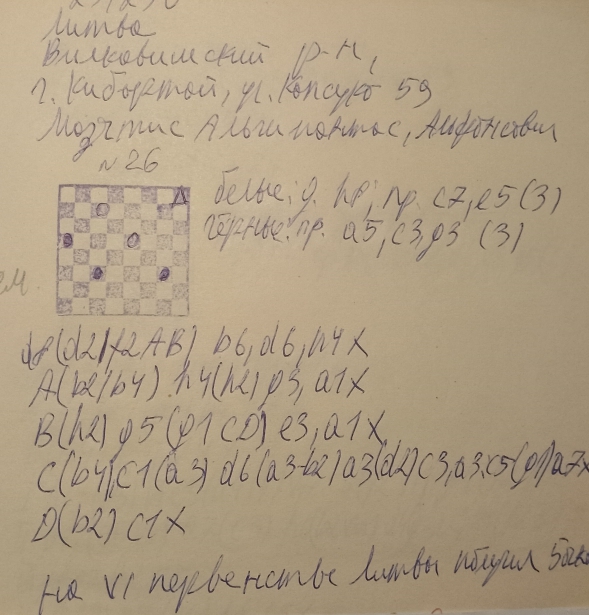 Литва
Вилковишский р-н,
г. Кибартай, ул. Капсуко 59
Мозчтис Альгимантас, Альфонсович
№ 26
белые: д. h8, пр. c7, e5 (3)
чёрные: пр. a5, c3, g3 (3)
(d2) f2 AB) b6, d6, h4 X
A(b2/b4) h4 (h2) g3, a1 X
B(h2) g5 (g1 CD) e3, a1 X
C(b4) c1 (a3) d6 (a3-b2) a3 (d2) c3, a3, c5 (g1) a7x
D(b2) c1 X
на VI первенстве Литвы получил